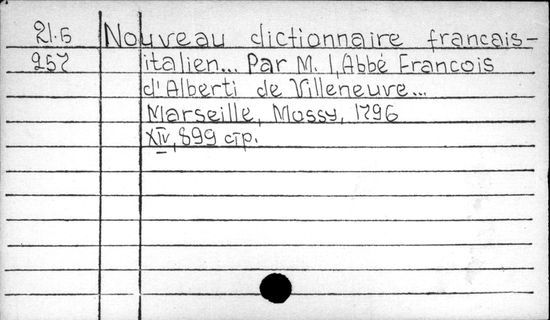 21.6 Nouveau dictionnaire francais-
257 italien... Par M. l,Abbé Francois
d'Alberti de Villeneuve...
Marseille, Mossy, 1796
XIV, 899 стр.